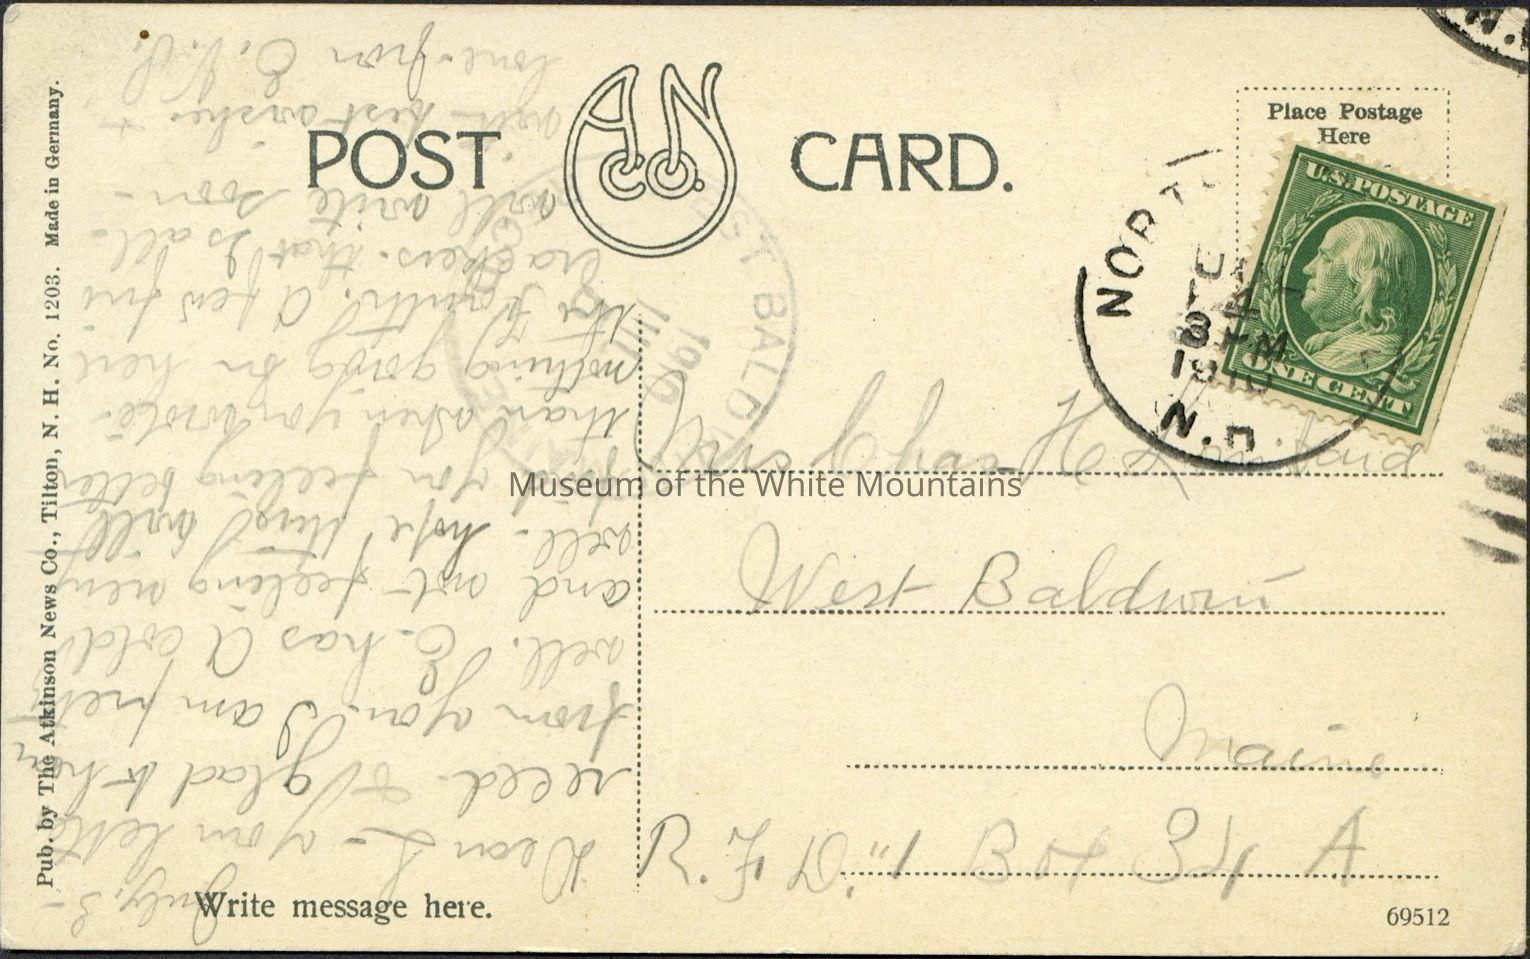 POST CARD.
AN Co.
Place Postage
Here
U.S. POSTAGE
ONE CENT
NORT
8 PM
1910
N.H.
BALD
1910
July. 3-
Dear L- your letter
recd. & glad to hear
from you. I am pretty
well. E- has a cold.
and not feeling very
well- hope this will
find you feeling better
than when you wrote.
nothing going on here
the fourth. A few fire
crackers. that is all.
will write soon-
with best wishes +
love- from E.
Mrs Chas H
West Baldwin
Maine
R. F. D. "1 Box 34 A
Write message here.
Pub. by The Atkinson News Co., Tilton, N. H. No. 1203. Made in Germany.
69512
Museum of the White Mountains